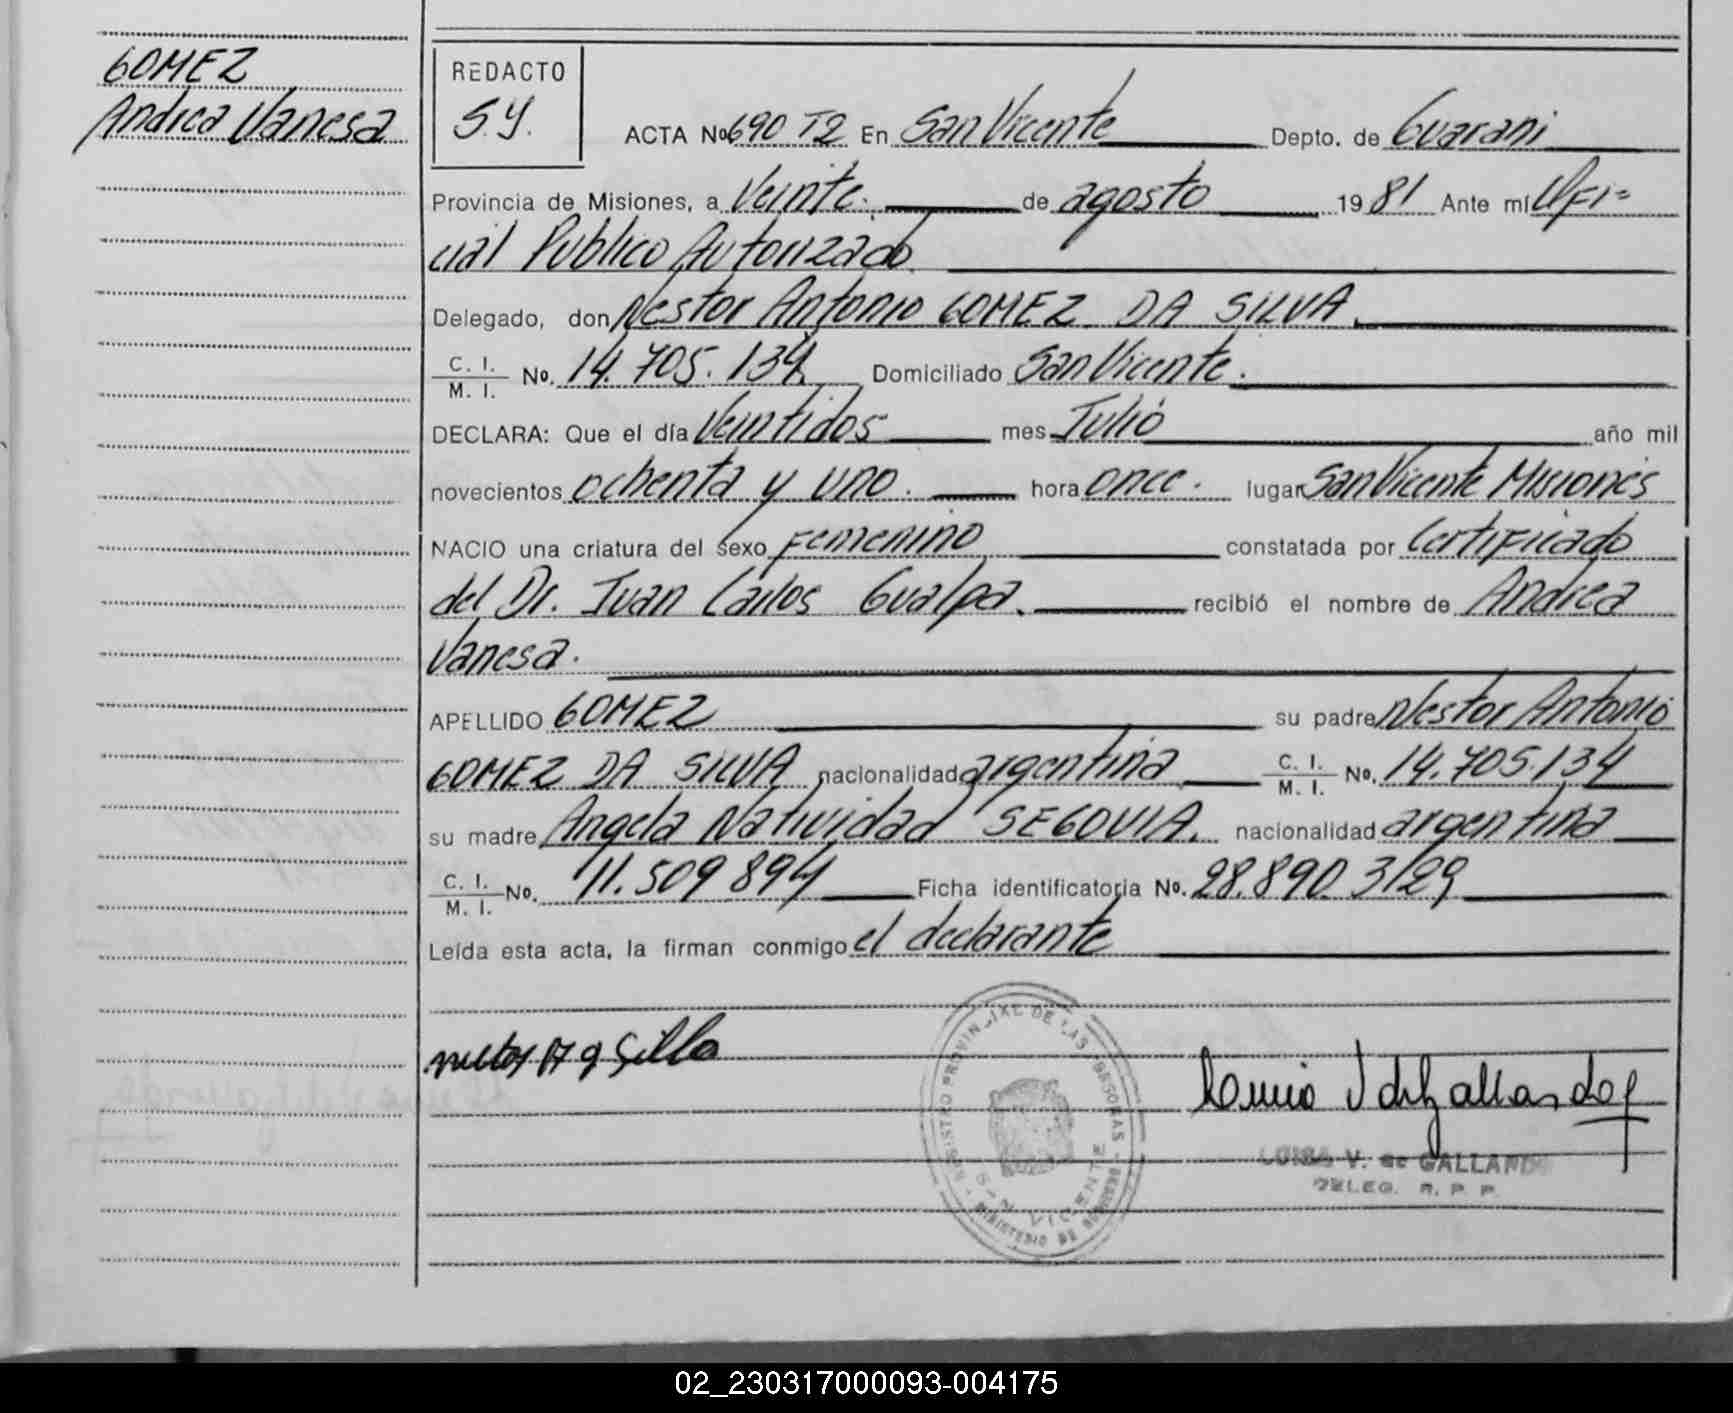 GOMEZ
Andrea Vanesa
REDACTO
S.Y.
ACTA No 690 T2 En San Vicente Depto. de Guarani
Provincia de Misiones, a Veinte. de agosto 1981 Ante mí Ofi=
cial Publico Autorizado.
Delegado, don Nestor Antonio GOMEZ DA SILVA.
C. I.
M. I. No. 14.705.134 Domiciliado San Vicente.
DECLARA: Que el día Veintidos mes Julio año mil
novecientos ochenta y uno. hora once. lugar San Vicente Misiones
NACIO una criatura del sexo femenino constatada por Certificado
del Dr. Juan Carlos Gualpa. recibió el nombre de Andrea
Vanesa.
APELLIDO GOMEZ su padre Nestor Antonio
GOMEZ DA SILVA nacionalidad argentina C. I.
M. I. No. 14.705.134
su madre Angela Natividad SEGOVIA. nacionalidad argentina
C. I.
M. I. No. 11.509 894 Ficha identificatoria No. 28.890.3129
Leída esta acta, la firman conmigo el declarante
REGISTRO PROVINCIAL DE LAS PERSONAS
SAN VICENTE
MINISTERIO DE
LUISA V. de GALLARDO
DELEG. R. P. P.
02_230317000093-004175